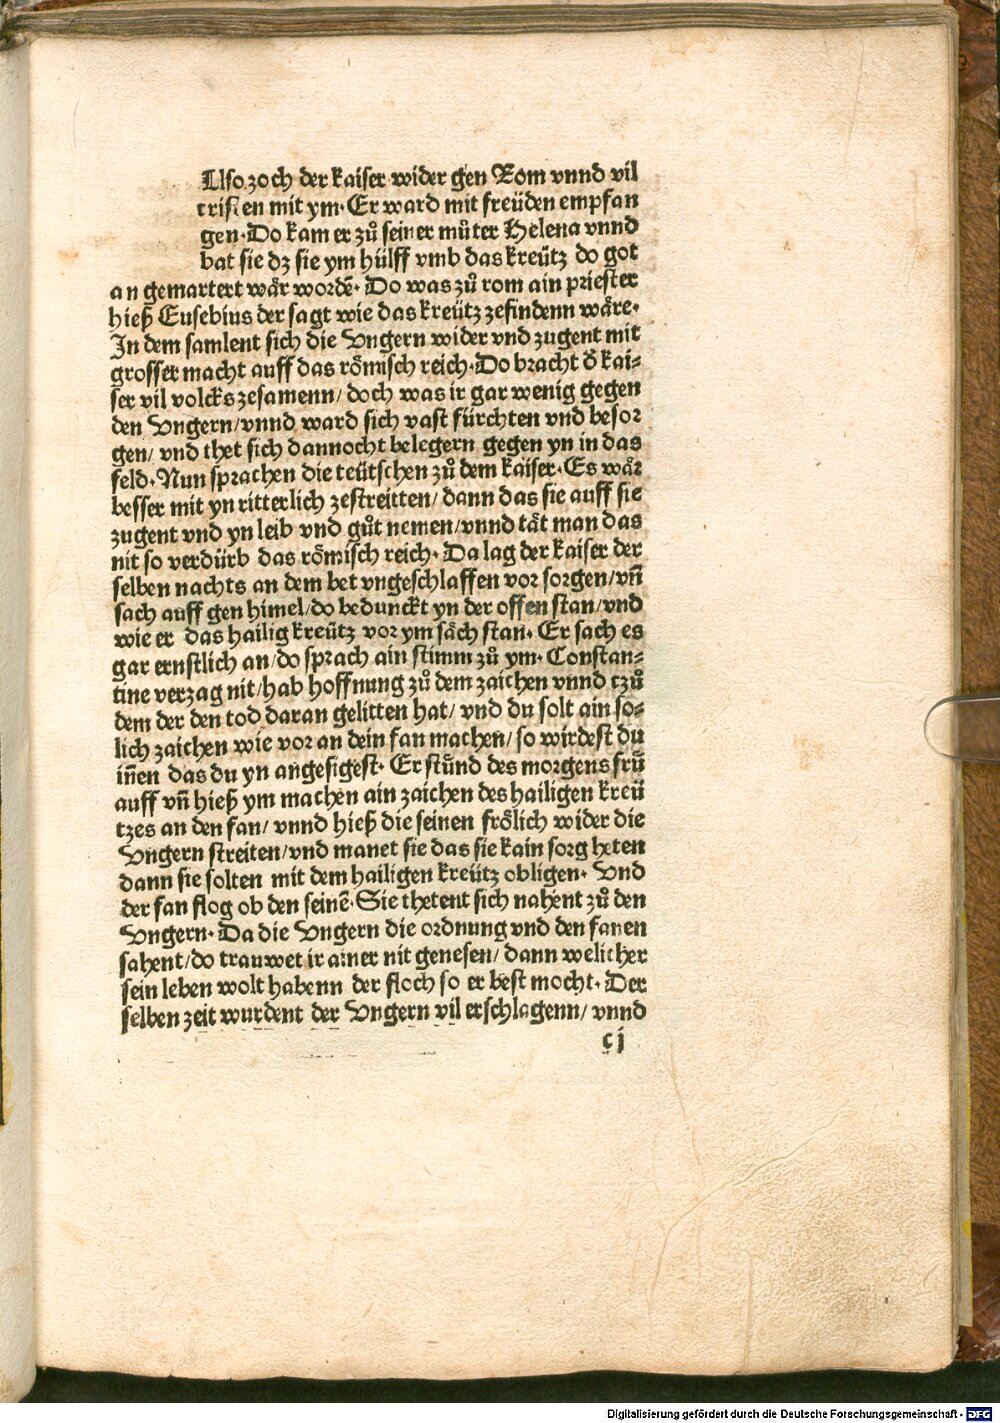 Also zoch der kaiser wider gen Rom vnnd vil
cristen mit ym. Er ward mit freüden empfan
gen. Do kam er zů seiner můter Helena vnnd
bat sie dz sie ym hülff vmb das kreütz do got
an gemartert wår wordē. Do was zů rom ain priester
hieß Eusebius der sagt wie das kreütz zefindenn wåre.
In dem samlent sich die Vngern wider vnd zugent mit
grosser macht auff das römisch reich. Do bracht d̄ kai-
ser vil volcks zesamenn/ doch was ir gar wenig gegen
den Vngern/ vnnd ward sich vast fürchten vnd besor
gen/ vnd thet sich dannocht belegern gegen yn in das
feld. Nun sprachen die teütschen zů dem kaiser. Es wår
besser mit yn ritterlich zestreitten/ dann das sie auff sie
zugent vnd yn leib vnd gůt nemen/ vnnd tåt man das
nit so verdürb das römisch reich. Da lag der kaiser der
selben nachts an dem bet vngeschlaffen vor sorgen/ vn̄
sach auff gen himel/ do bedunckt yn der offen stan/ vnd
wie er das hailig kreütz vor ym såch stan. Er sach es
gar ernstlich an/ do sprach ain stimm zů ym. Constan-
tine verzag nit/ hab hoffnung zů dem zaichen vnnd czů
dem der den tod daran gelitten hat/ vnd du solt ain so-
lich zaichen wie vor an dein fan machen/ so wirdest du
iñen das du yn angesigest. Er stůnd des morgens frů
auff vn̄ hieß ym machen ain zaichen des hailigen kreü
tzes an den fan/ vnnd hieß die seinen frölich wider die
Vngern streiten/ vnd manet sie das sie kain sorg heten
dann sie solten mit dem hailigen kreütz obligen. Vnd
der fan flog ob den seinē. Sie thetent sich nahent zů den
Vngern. Da die Vngern die ordnung vnd den fanen
sahent/ do trauwet ir ainer nit genesen/ dann welicher
sein leben wolt habenn der floch so er best mocht. Der
selben zeit wurdent der Vngern vil erschlagenn/ vnnd
c j
Digitalisierung gefördert durch die Deutsche Forschungsgemeinschaft - DFG